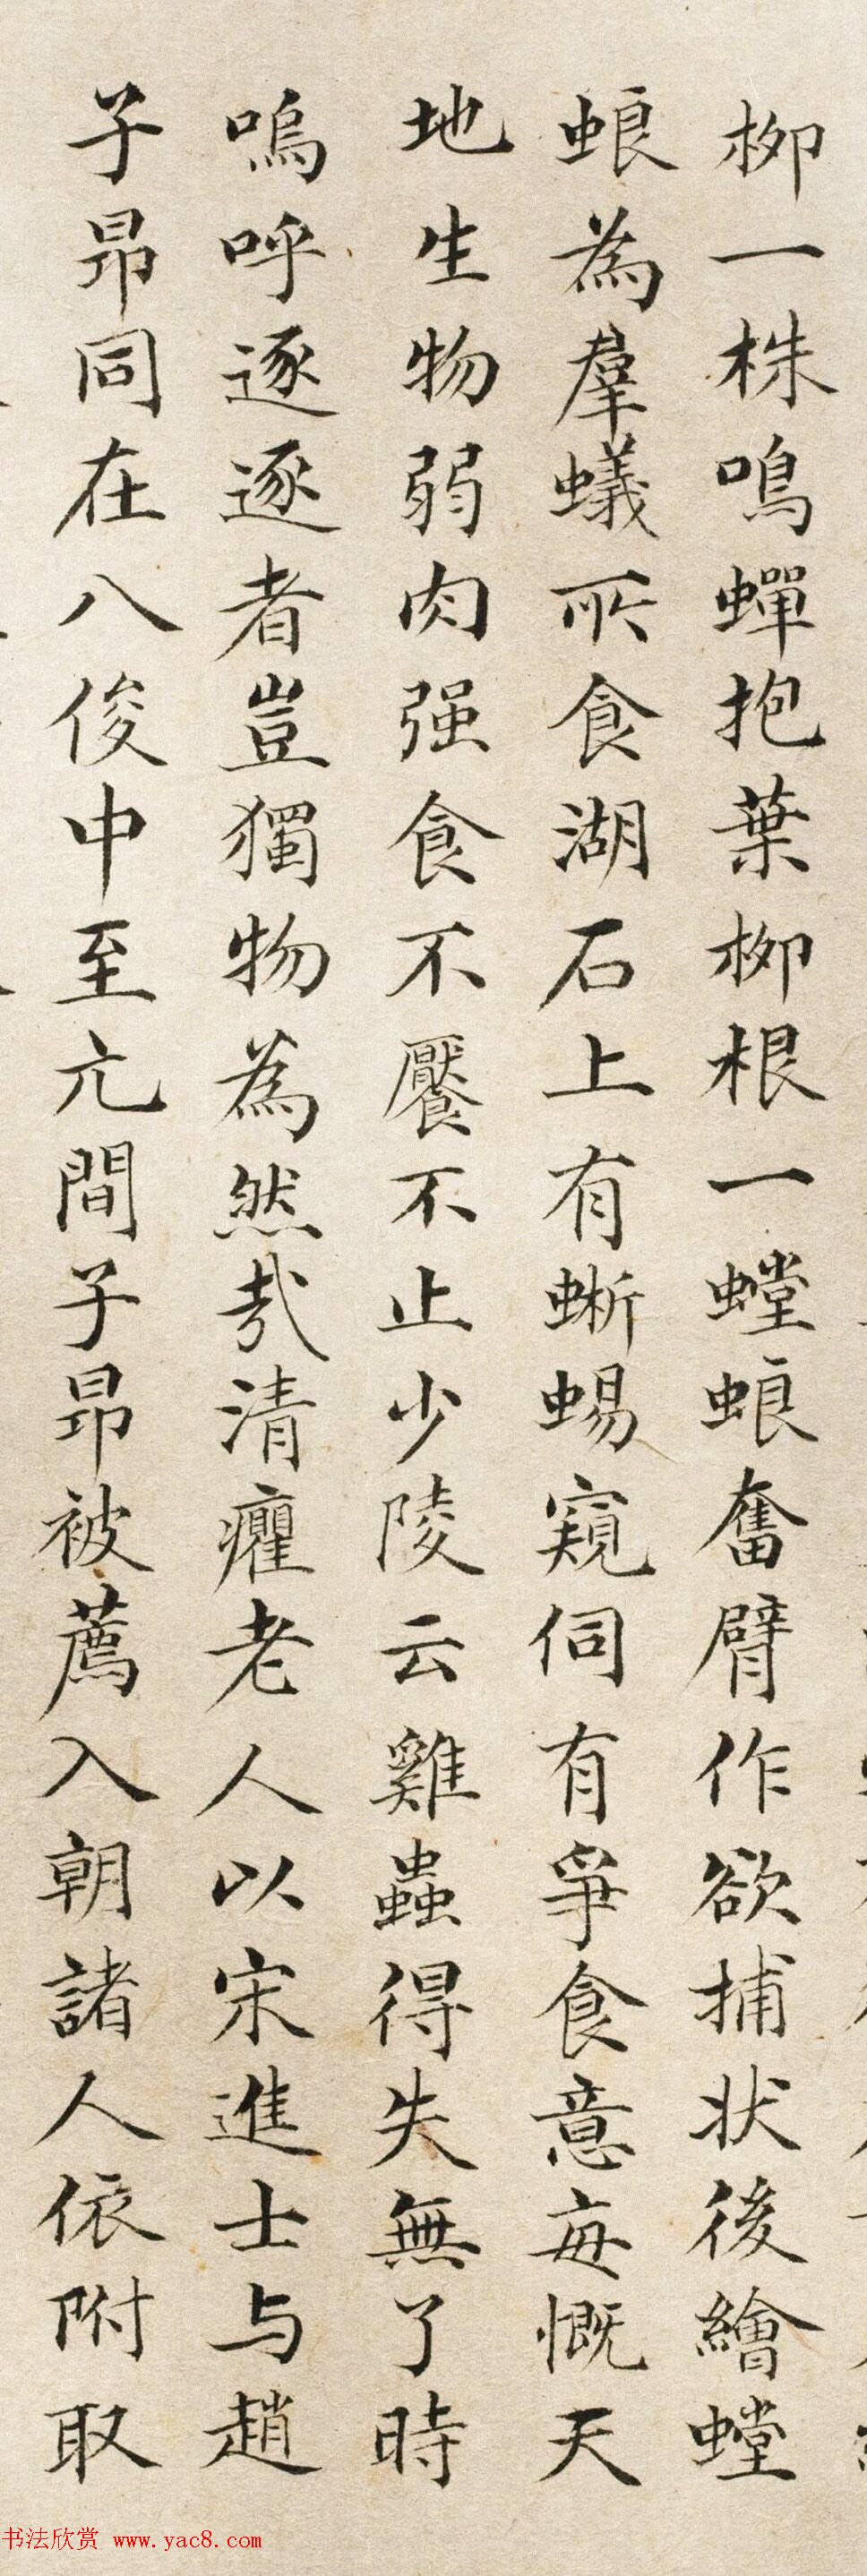 柳一株鳴蟬抱葉柳根一螳蜋奮臂作欲捕状後繪螳
蜋為羣蟻所食湖石上有蜥蜴窺伺有爭食意每慨天
地生物弱肉强食不饜不止少陵云雞蟲得失無了時
嗚呼逐逐者豈獨物為然哉清癯老人以宋進士与趙
子昂同在八俊中至元間子昂被薦入朝諸人依附取
书法欣赏 www.yac8.com